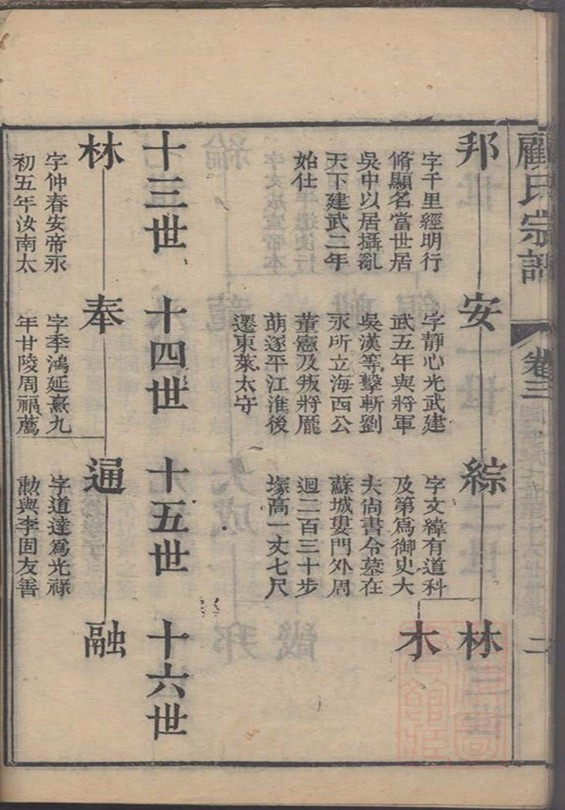 顧氏宗譜
卷三
二
邦
字千里經明行
脩顯名當世居
吳中以居攝亂
天下建武二年
始仕
安
字靜心光武建
武五年與將軍
吳漢等擊斬劉
永所立海西公
董憲及叛將龎
萌遂平江淮後
遷東萊太守
綜
字文緯有道科
及第爲御史大
夫尚書令墓在
蘇城婁門外周
迴二百三十步
塚高一丈七尺
林
木
十三世
十四世
十五世
十六世
林
字仲春安帝永
初五年汝南太
奉
字季鴻延熹九
年甘陵周福薦
通
字道達爲光祿
勲與李固友善
融